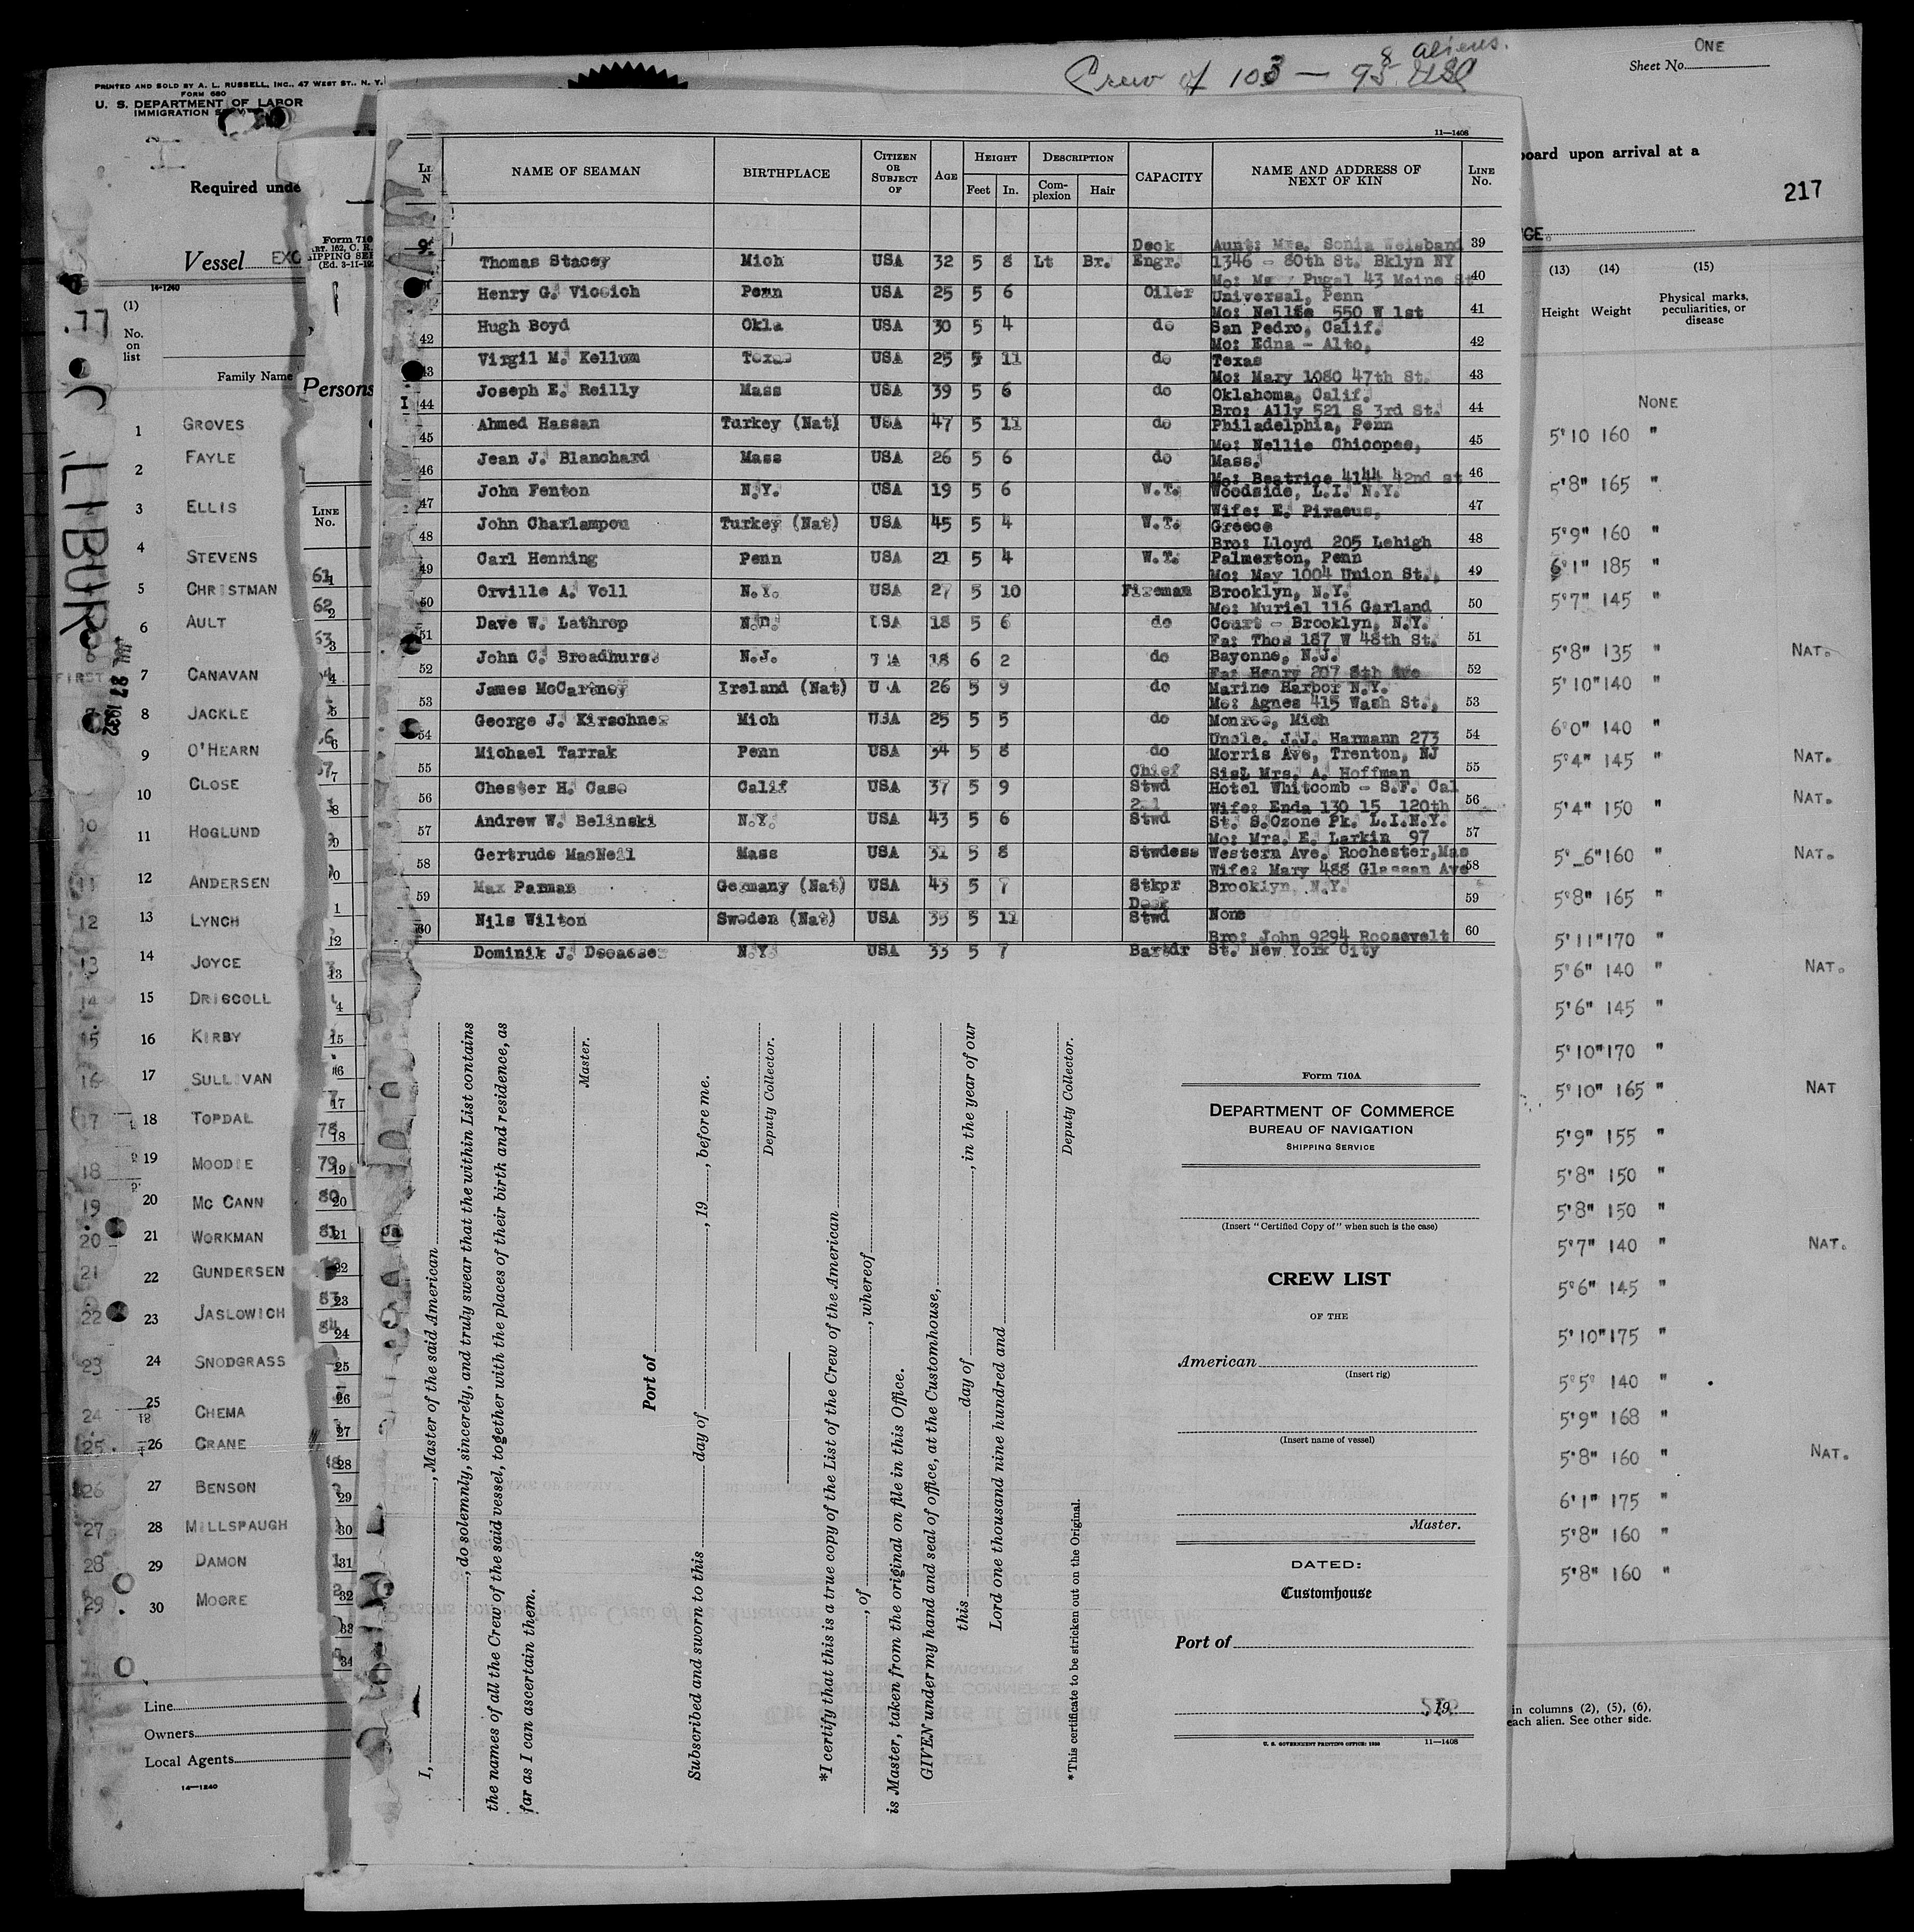 Crew of 103 — 95 USC
8 aliens.
ONE
Sheet No.
PRINTED AND SOLD BY A. L. RUSSELL, INC., 47 WEST ST., N. Y.
FORM 680
U. S. DEPARTMENT OF LABOR
IMMIGRATION
Required unde
board upon arrival at a
217
Vessel EXC
14-1240
(1)
No. on list
Family Name
Form 710
Persons
LINE No.
11—1408
NAME OF SEAMAN BIRTHPLACE CITIZEN OR SUBJECT OF AGE HEIGHT Feet In. DESCRIPTION Complexion Hair CAPACITY NAME AND ADDRESS OF NEXT OF KIN LINE No.
Deck Aunt: Mrs. Sonia Weisband 39
Thomas Stacey Mich USA 32 5 8 Lt Br. Engr. 1346 - 80th St. Bklyn NY
Pugal 43 Maine St 40
Henry G. Viccich Penn USA 25 5 6 Oiler Universal, Penn
Mo: Nellie 550 W 1st 41
Hugh Boyd Okla USA 30 5 4 do San Pedro, Calif.
42 Mo: Edna - Alto, 42
Virgil M. Kellum Texas USA 25 5 11 do Texas
43 Mo: Mary 1080 47th St. 43
Joseph E. Reilly Mass USA 39 5 6 do Oklahoma, Calif.
44 Bro: Ally 521 S 3rd St. 44
Ahmed Hassan Turkey (Nat) USA 47 5 11 do Philadelphia, Penn
45 Mo: Nellie Chicopee, 45
Jean J. Blanchard Mass USA 26 5 6 do Mass.
46 Mo: Beatrice 4144 42nd st 46
John Fenton N.Y. USA 19 5 6 W.T. Woodside, L.I. N.Y.
47 Wife: E. Piraeus, 47
John Charlampou Turkey (Nat) USA 45 5 4 W.T. Greece
48 Bro: Lloyd 205 Lehigh 48
Carl Henning Penn USA 21 5 4 W.T. Palmerton, Penn
49 Mo: May 1004 Union St., 49
Orville A. Voll N.Y. USA 27 5 10 Fireman Brooklyn, N.Y.
50 Mo: Muriel 116 Garland 50
Dave W. Lathrop USA 18 5 6 do Court - Brooklyn, N.Y.
51 Fa: Thos 187 W 48th St. 51
John C. Broadhurs N.J. 18 6 2 do Bayonne, N.J.
52 Fa: Henry 207 8th Ave 52
James McCartney Ireland (Nat) U A 26 5 9 do Marine Harbor N.Y.
53 Mo: Agnes 415 Wash St., 53
George J. Kirschner Mich USA 25 5 5 do Monroe, Mich
54 Uncle, J.J. Harmann 273 54
Michael Tarrak Penn USA 34 5 8 do Morris Ave, Trenton, NJ
55 Chief Sis: Mrs. A. Hoffman 55
Chester H. Case Calif USA 37 5 9 Stwd Hotel Whitcomb - S.F. Cal
56 Wife: Enda 130 15 120th 56
Andrew W. Belinski N.Y. USA 43 5 6 Stwd St. S.Ozone Pk. L.I.N.Y.
57 Mo: Mrs. E. Larkin 97 57
Gertrude MacNeil Mass USA 31 5 8 Stwdess Western Ave. Rochester,Mas
58 Wife: Mary 488 Glassan Ave 58
Max Parman Germany (Nat) USA 43 5 7 Stkpr Brooklyn, N.Y.
59 Deck 59
Nils Wilton Sweden (Nat) USA 35 5 11 Stwd None
60 Bro: John 9294 Roosevelt 60
Dominik J. N.Y. USA 33 5 7 Bartdr St. New York City
LIBUR
JUL 27 1932
FIRST
1 GROVES
2 FAYLE
3 ELLIS
4 STEVENS
5 CHRISTMAN
6 AULT
7 CANAVAN
8 JACKLE
9 O'HEARN
10 CLOSE
11 HOGLUND
12 ANDERSEN
13 LYNCH
14 JOYCE
15 DRISCOLL
16 KIRBY
17 SULLIVAN
18 TOPDAL
19 MOODIE
20 MC CANN
21 WORKMAN
22 GUNDERSEN
23 JASLOWICH
24 SNODGRASS
25 CHEMA
26 CRANE
27 BENSON
28 MILLSPAUGH
29 DAMON
30 MOORE
Line
Owners
Local Agents
14—1240
I, , Master of the said American
, do solemnly, sincerely, and truly swear that the within List contains
the names of all the Crew of the said vessel, together with the places of their birth and residence, as
far as I can ascertain them.
Master.
Port of
Subscribed and sworn to this day of , 19 , before me.
Deputy Collector.
*I certify that this is a true copy of the List of the Crew of the American
, of , whereof
is Master, taken from the original on file in this Office.
GIVEN under my hand and seal of office, at the Customhouse,
this day of , in the year of our
Lord one thousand nine hundred and
Deputy Collector.
*This certificate to be stricken out on the Original.
Form 710A
DEPARTMENT OF COMMERCE
BUREAU OF NAVIGATION
SHIPPING SERVICE
(Insert "Certified Copy of" when such is the case)
CREW LIST
OF THE
American
(Insert rig)
(Insert name of vessel)
Master.
DATED:
Customhouse
Port of
19
U. S. GOVERNMENT PRINTING OFFICE: 1930 11—1408
GE.
(13) (14) (15)
Height Weight Physical marks, peculiarities, or disease
NONE
5'10 160 "
5'8" 165 "
5'9" 160 "
6'1" 185 "
5'7" 145 "
5'8" 135 " NAT.
5'10" 140 "
6'0" 140 "
5'4" 145 " NAT.
5'4" 150 " NAT.
5'_6" 160 " NAT.
5'8" 165 "
5'11" 170 "
5'6" 140 " NAT.
5'6" 145 "
5'10" 170 "
5'10" 165 " NAT
5'9" 155 "
5'8" 150 "
5'8" 150 "
5'7" 140 " NAT.
5'6" 145 "
5'10" 175 "
5'5" 140 "
5'9" 168 "
5'8" 160 " NAT.
6'1" 175 "
5'8" 160 "
5'8" 160 "
in columns (2), (5), (6),
each alien. See other side.